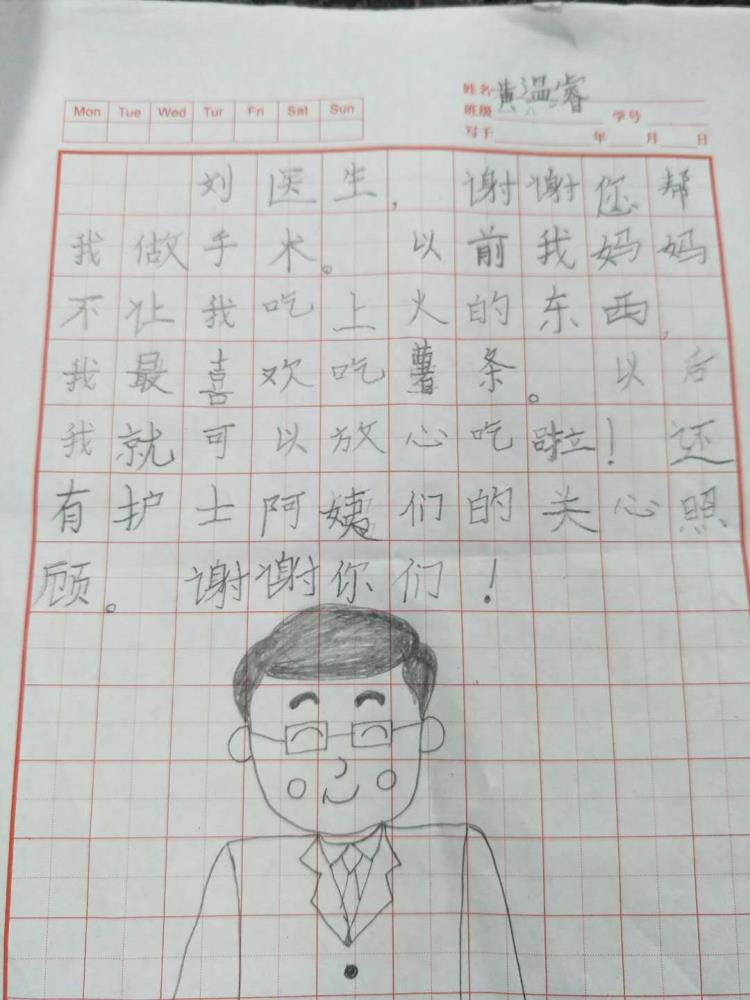 Mon Tue Wed Tur Fri Sat Sun
姓名 黄温睿
班级 学号
写于 年 月 日
刘医生，谢谢您帮
我做手术。以前我妈妈
不让我吃上火的东西，
我最喜欢吃薯条。以后
我就可以放心吃啦！还
有护士阿姨们的关心照
顾。谢谢你们！